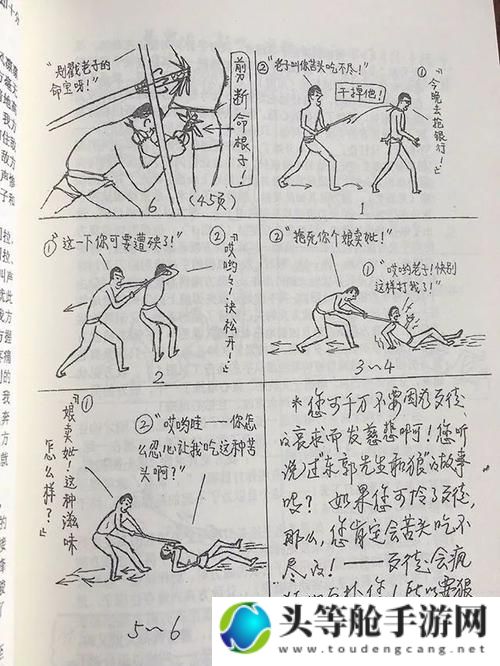 "别戳老子的
命宝呀！"
剪断命根子！
6 (45页)
②"老子叫你苦头吃不尽！"
干掉他！
①"今晚去抢银行！"
1
①"这一下你可要遭殃了！"
②"哎哟々！快松开！"
2
②"拖死你个娘卖妣！"
①"哎哟老子！快别
这样打我了！"
3～4
①
"娘卖妣！这种滋味
怎么样？"
②"哎哟哇——你怎
么忍心让我吃这种苦
头啊？"
5～6
*您可千万不要因为歹徒
的哀求而发慈悲啊！您听
说过"东郭先生和狼"的故事
吧？如果您可怜了歹徒，
那么，您肯定会苦头吃不
尽的！——歹徒会疯
头等舱手游网
www.toudengcang.net